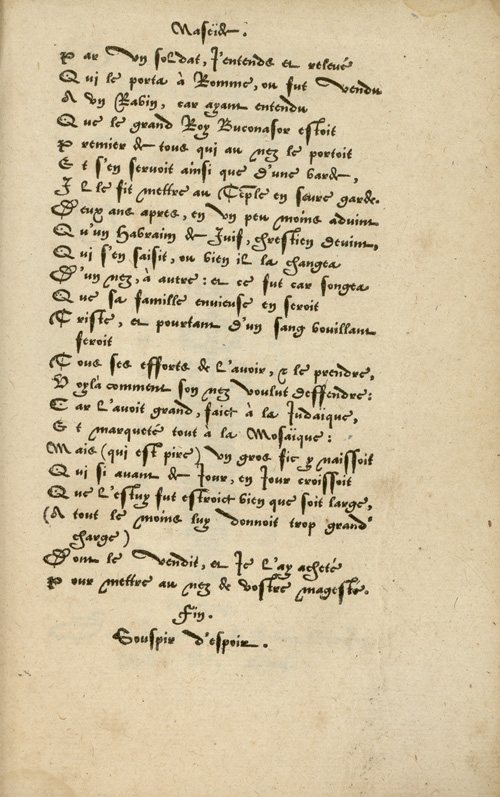 Naseïde.
Par Un soldat, J'entends et relevé
Qui le porta à Romme, ou fut Vendu
A Un Rabin, car ayant entendu
Que le grand Roy Buconasor estoit
Premier de tous qui au nez le portoit
Et s'en servoit ainsi que d'une barde,
Il le fit mettre au Tẽple en seure garde.
Deux ans apres, en Un peu moins advint
Qu'un Habraim de Juif, chrestien devint,
Qui s'en saisit, ou bien il la changea
D'un nez, à autre: et ce fut car songea
Que sa famille envieuse en seroit
Triste, et pourtant d'un sang bouillant
feroit
Tous ses efforts de l'avoir, & le prendre,
Voyla comment son nez Voulut deffendre:
Car l'avoit grand, faict à la Judaique,
Et marqueté tout à la Mosaïque:
Mais (qui est pire) Un gros fic y naissoit
Qui si avant de Jour, en Jour croissoit
Que l'estuy fut estroict bien que soit large,
(A tout le moins luy donnoit trop grand'
charge)
Dont le Vendit, et Je l'ay acheté
Pour mettre au nez de Vostre magesté.
Fin.
Souspir d'espoir.